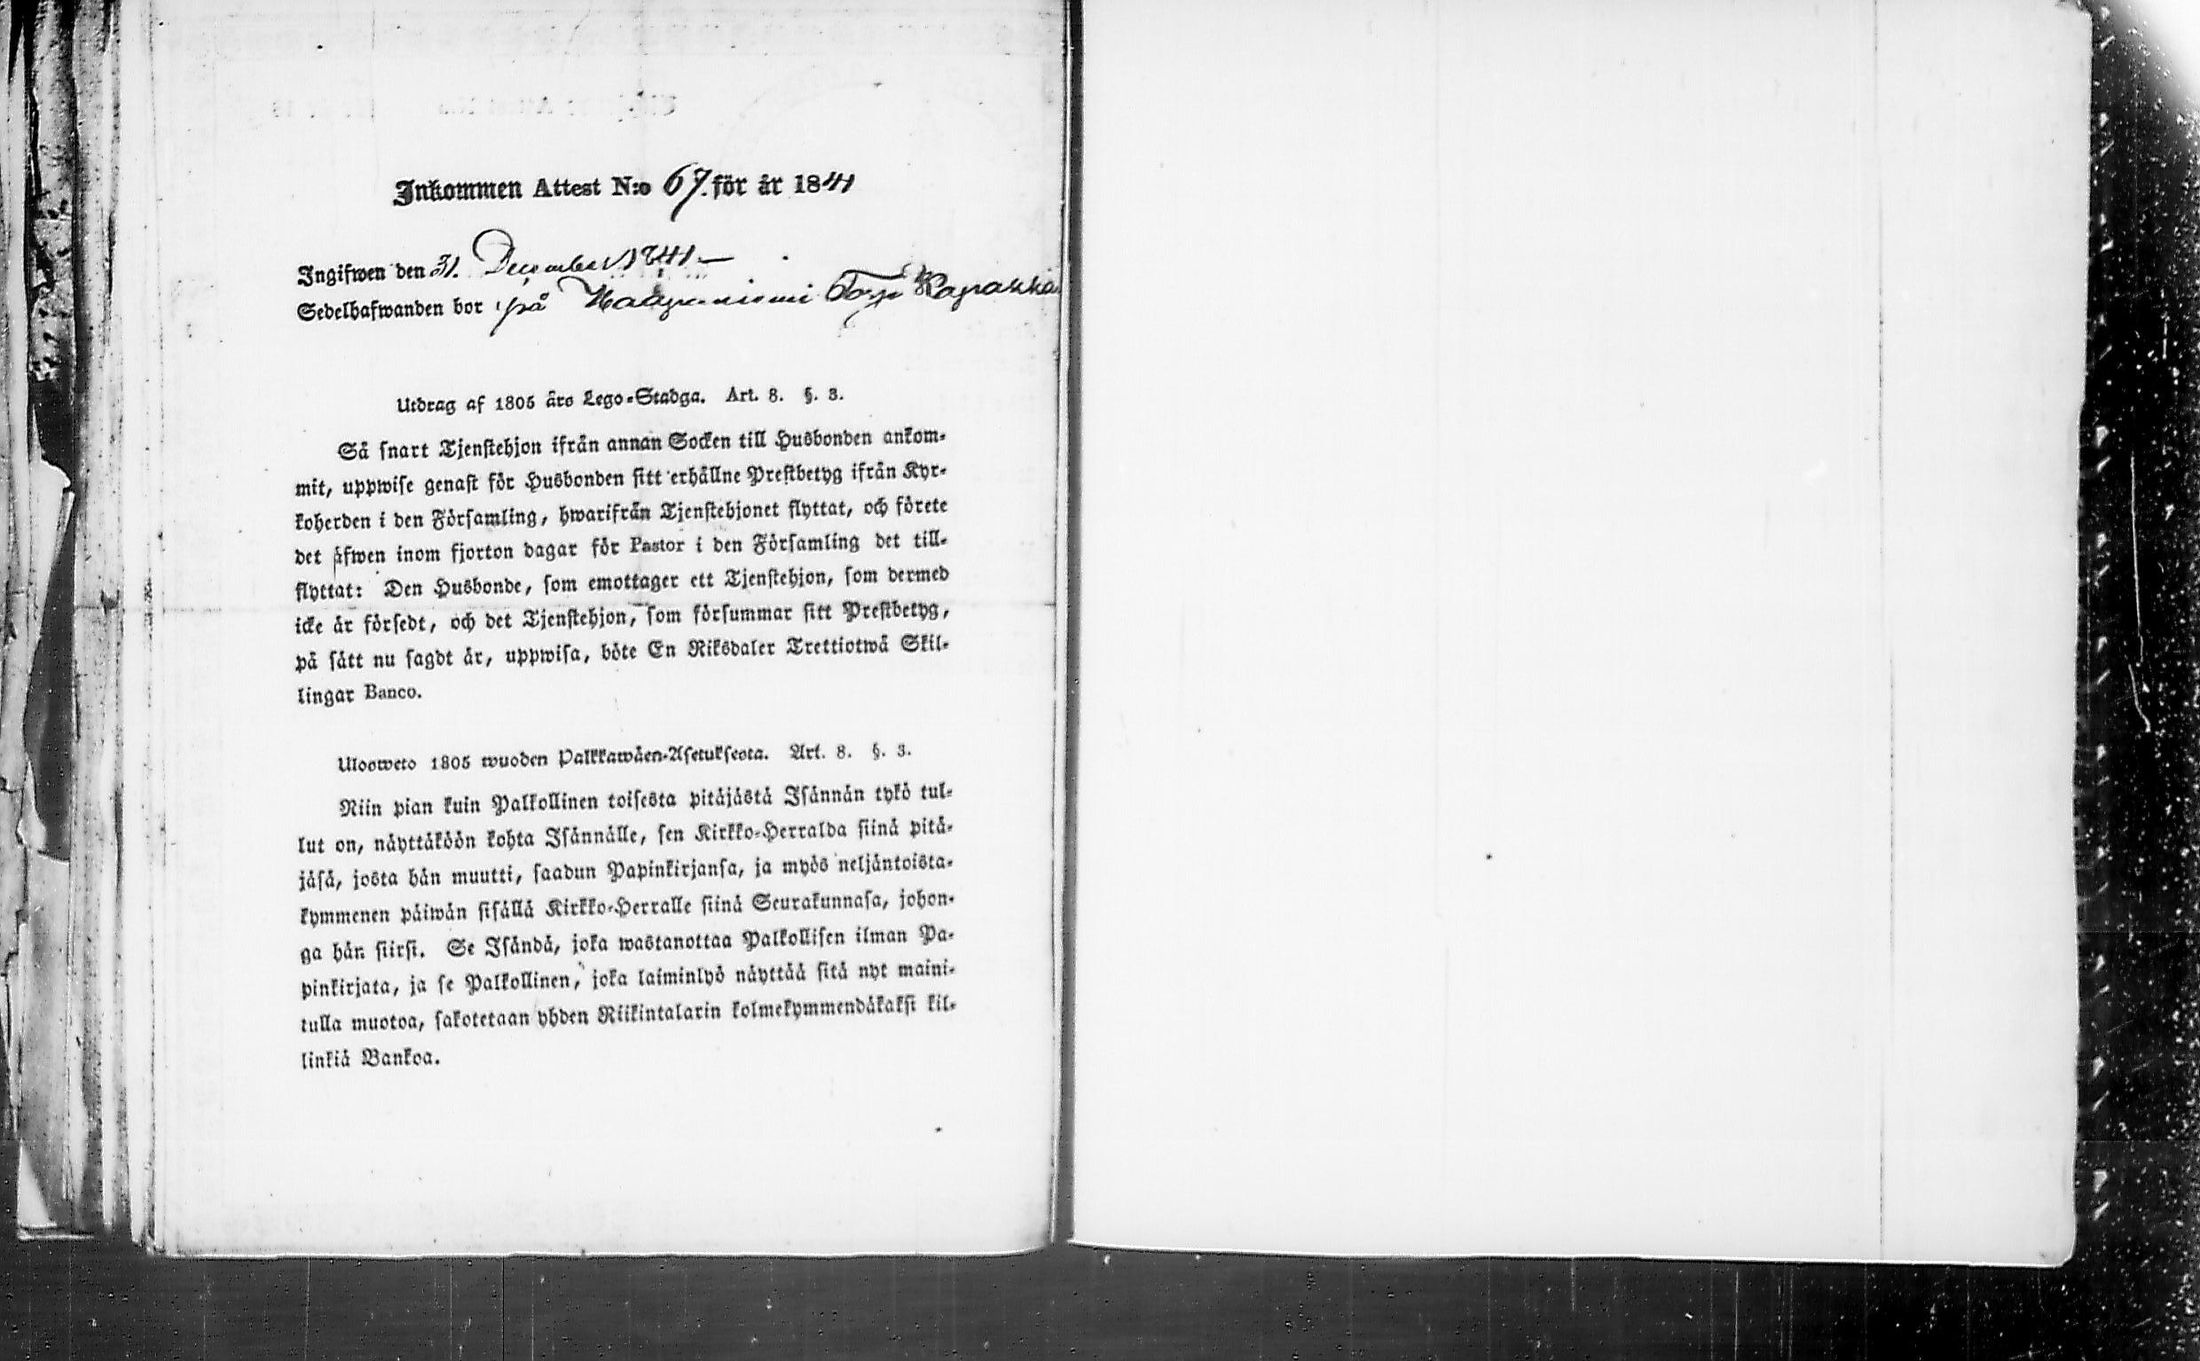 Inkommen Attest N:o 67. för år 1841
Ingifwen den 31. December 1841 –
Sedelhafwanden bor på Haapaniemi Torp Kapakka
Utdrag af 1805 års Lego-Stadga. Art. 8. §. 3.
Så snart Tjenstehjon ifrån annan Socken till Husbonden ankom-
mit, uppwise genast för Husbonden sitt erhållne Prestbetyg ifrån Kyr-
koherden i den Församling, hwarifrån Tjenstehjonet flyttat, och förete
det äfwen inom fjorton dagar för Pastor i den Församling det till-
flyttat: Den Husbonde, som emottager ett Tjenstehjon, som dermed
icke är försedt, och det Tjenstehjon, som försummar sitt Prestbetyg,
på sätt nu sagdt är, uppwisa, böte En Riksdaler Trettiotwå Skil-
lingar Banco.
Ulosweto 1805 wuoden Palkkawäen-Asetuksesta. Art. 8. §. 3.
Niin pian kuin Palkollinen toisesta pitäjästä Isännän tykö tul-
lut on, näyttäköön kohta Isännälle, sen Kirkko-Herralda siinä pitä-
jäsä, josta hän muutti, saadun Papinkirjansa, ja myös neljäntoista-
kymmenen päiwän sisällä Kirkko-Herralle siinä Seurakunnasa, johon-
ga hän siirsi. Se Isändä, joka wastanottaa Palkollisen ilman Pa-
pinkirjata, ja se Palkollinen, joka laiminlyö näyttää sitä nyt maini-
tulla muotoa, sakotetaan yhden Riikintalarin kolmekymmendäkaksi kil-
linkiä Bankoa.